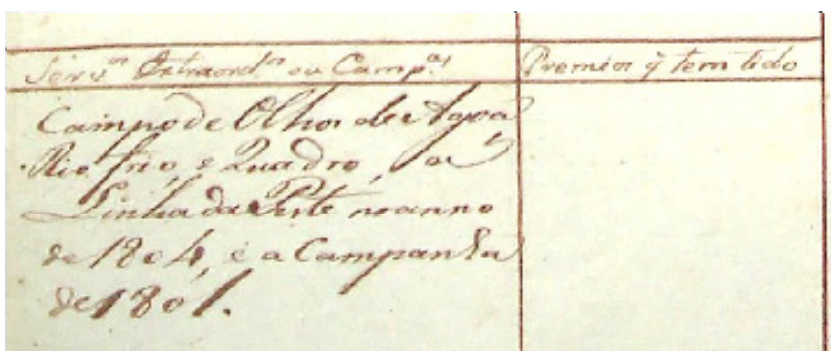 Serv.ºs Extraord.ºs ou Camp.as
Premios q̃ tem tido
Campo de Olhos de Agoa
Rio frio, e Quadro, a
Linha da Peste no anno
de 1804, e a Campanha
de 1801.